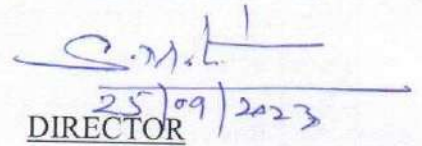 25/09/2023
DIRECTOR